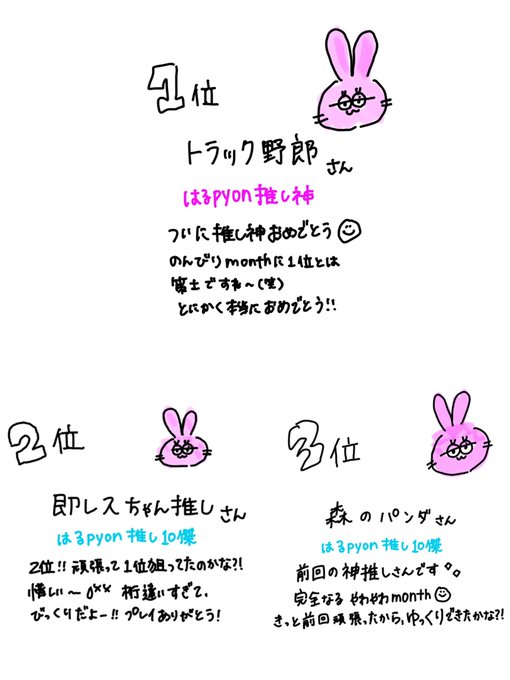 1位
トラック野郎さん
はるpyon推し神
ついに推し神おめでとう
のんびりmonthに1位とは
策士ですね〜(笑)
とにかく本当におめでとう!!
2位
即レスちゃん推しさん
はるpyon推し10傑
2位!!頑張って1位狙ってたのかな?!
惜しい〜 桁違いすぎて、
びっくりだよー!!プレイありがとう!
3位
森のパンダさん
はるpyon推し10傑
前回の神推しさんです
完全なるやわやわmonth
きっと前回頑張ったから、ゆっくりできたかな?!